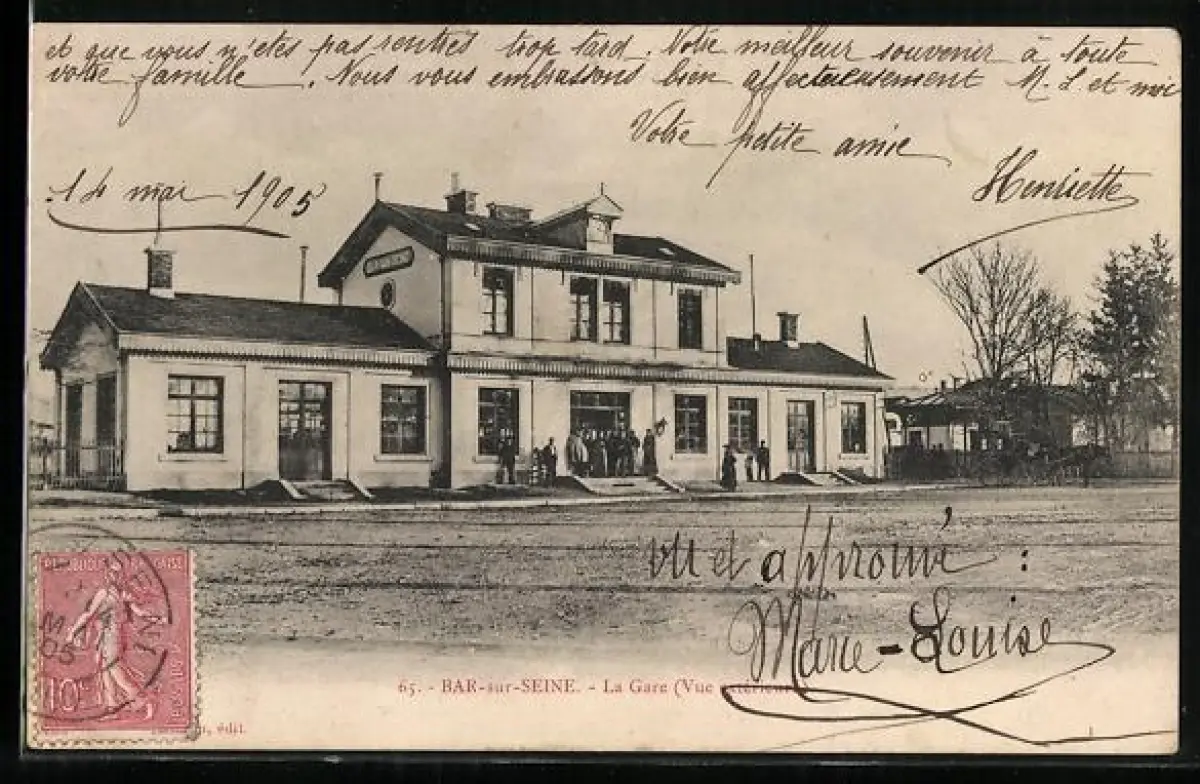 et que vous n'êtes pas rentrés trop tard. Votre meilleur souvenir à toute
votre famille. Nous vous embrassons bien affectueusement M. L. et moi
Votre petite amie
Henriette
14 mai 1905
vu et approuvé :
Marie-Louise
REPUBLIQUE FRANÇAISE
10c
MAI
05
65. - BAR-sur-SEINE. - La Gare (Vue extérieure)
édit.